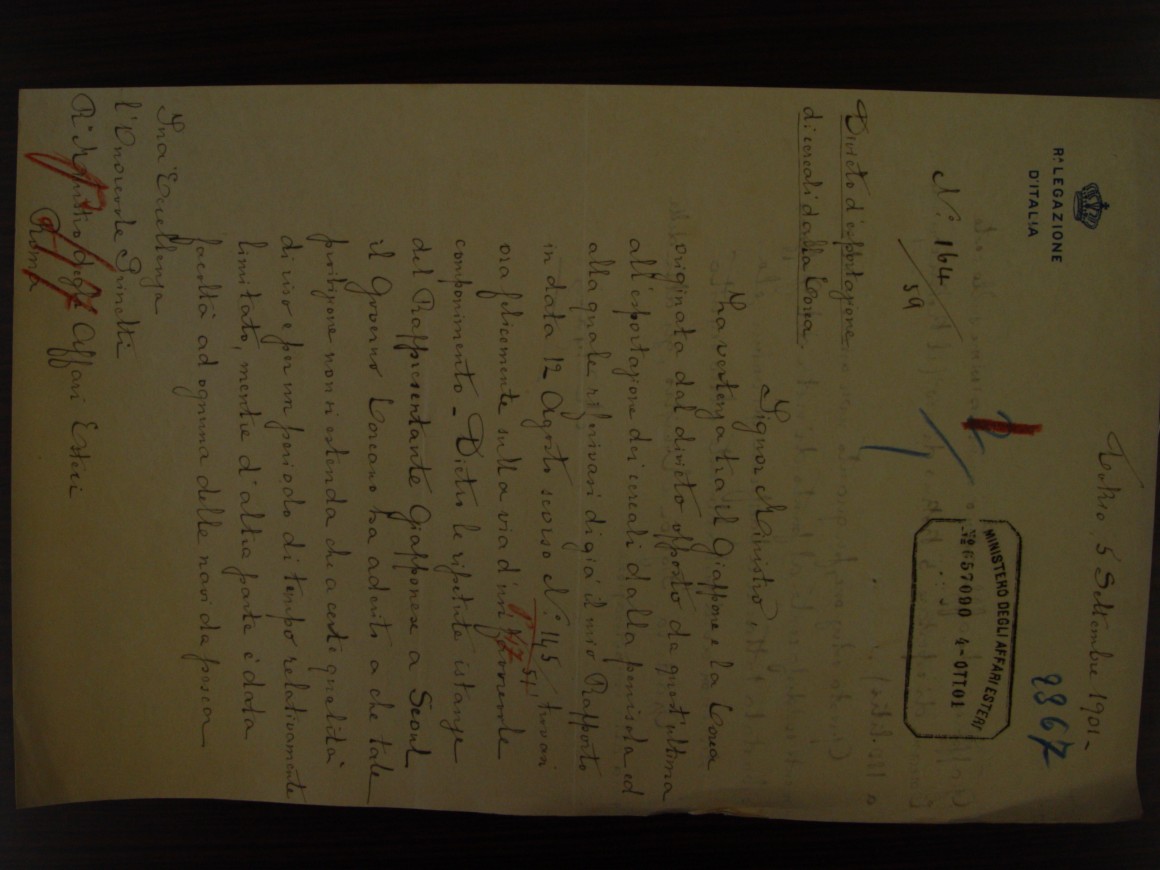 Rª LEGAZIONE
D'ITALIA
Tokio, 5 Settembre 1901-
2367
N.° 164
59
MINISTERO DEGLI AFFARI ESTERI
№ 657090 4-OTT01
Divieto d'esportazione
di cereali dalla Corea
Signor Ministro
La vertenza tra il Giappone e la Corea
originata dal divieto opposto da quest'ultima
all'esportazione dei cereali dalla penisola ed
alla quale riferivasi digià il mio Rapporto
in data 12 Agosto scorso N.° 145 trovasi
ora felicemente sulla via d'un
componimento - Dietro le ripetute istanze
del Rappresentante Giapponese a Seoul
il Governo Coreano ha aderito a che tale
proibizione non si estenda che a certe qualità
di riso e per un periodo di tempo relativamente
limitato, mentre d'altra parte è data
facoltà ad ognuna delle navi da pesca
Sua Eccellenza
l'Onorevole Prinetti
R.° Ministro degli Affari Esteri
Roma